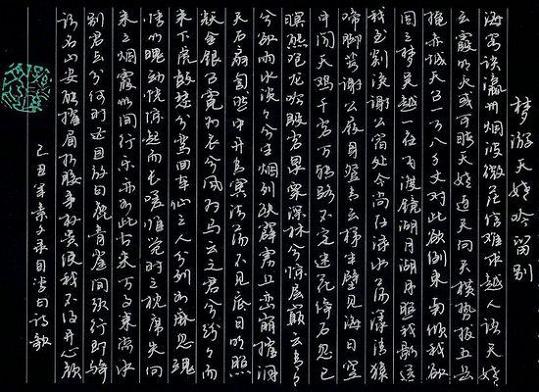 梦游天姥吟留别
海客谈瀛州烟波微茫信难求越人语天姥
云霞明灭或可睹天姥连天向天横势拔五岳
掩赤城天台一万八千丈对此欲倒东南倾我欲
因之梦吴越一夜飞渡镜湖月湖月照我影送
我至剡溪谢公宿处今尚在渌水荡漾清猿
啼脚著谢公屐身登青云梯半壁见海日空
中闻天鸡千岩万转路不定迷花倚石忽已
暝熊咆龙吟殷岩泉栗深林兮惊层巅云青青
兮欲雨水淡淡兮生烟列缺霹雳丘峦崩摧洞
天石扇訇然中开青冥浩荡不见底日月照
耀金银台霓为衣兮风为马云之君兮纷纷而
来下虎鼓瑟兮鸾回车仙之人兮列如麻忽魂
悸以魄动恍惊起而长嗟惟觉时之枕席失向
来之烟霞世间行乐亦如此古来万事东流水
别君去兮何时还且放白鹿青崖间须行即骑
访名山安能摧眉折腰事权贵使我不得开心颜
己丑年
录自
诗歌